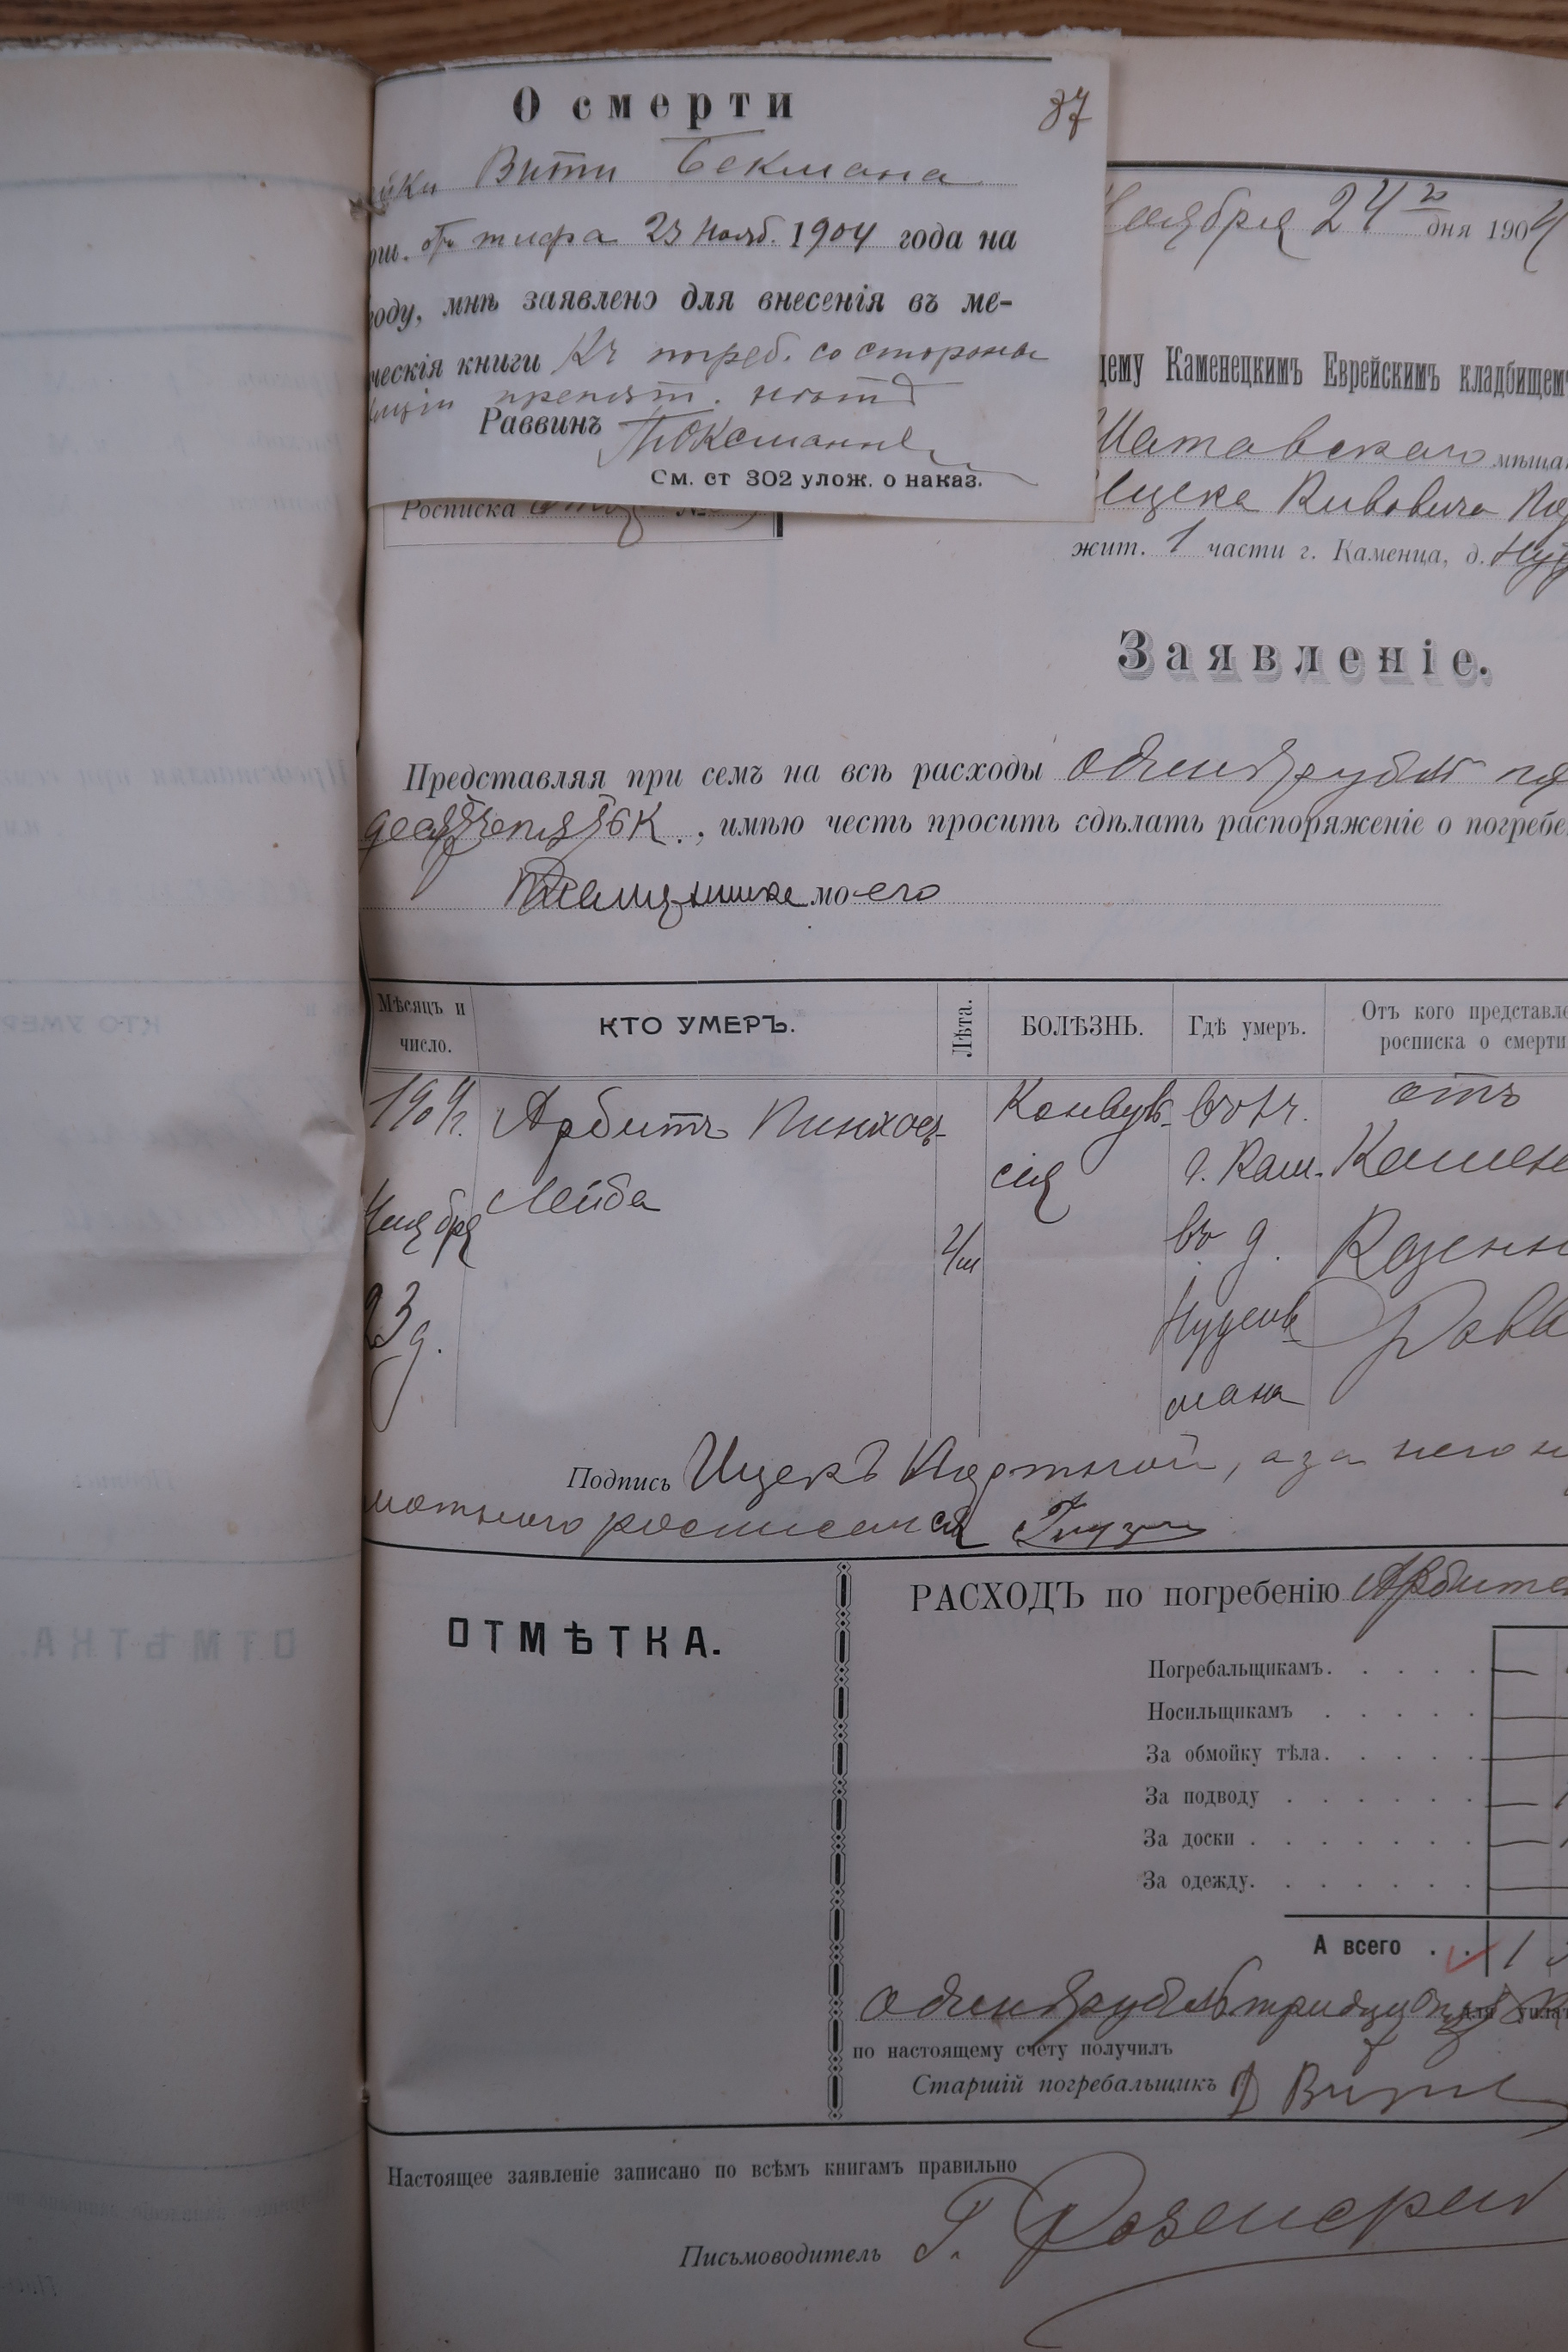 О смерти
37
Вити Бекмана
от тифа 23 Нояб. 1904 года на
году, мнѣ заявлено для внесенія въ ме-
ческія книги Къ погреб. со стороны
препят. нѣтъ
Раввинъ
См. ст 302 улож. о наказ.
Росписка
Ноября 24 го дня 1904
щему Каменецкимъ Еврейскимъ кладбищемъ
Шатавского мѣща
Ицека Кивовича
жит. 1 части г. Каменца, д.
Заявленіе.
Представляя при семъ на всѣ расходы одинъ рубль пя
десять 56 к., имѣю честь просить сдѣлать распоряженіе о погребе
племянника моего
Мѣсяцъ и число.
КТО УМЕРЪ.
Лѣта.
БОЛѢЗНЬ.
Гдѣ умеръ.
Отъ кого представле
росписка о смерти
1904 г.
Ноября
23 д.
Арбитъ Пинхос-
Лейба
Конвуль-
сія
въ 1 ч.
г. Кам.
въ д.
Нудель-
мана
отъ
Камен
Казенн
Рави
Подпись Ицекъ Портной, а за него н
мотного росписался
ОТМѢТКА.
РАСХОДЪ по погребенію Арбита
Погребальщикамъ.
Носильщикамъ
За обмойку тѣла.
За подводу
За доски
За одежду.
А всего 1
одинъ рубль тридцать
по настоящему счету получилъ
Старшій погребальщикъ
Настоящее заявленіе записано по всѣмъ книгамъ правильно
Письмоводитель